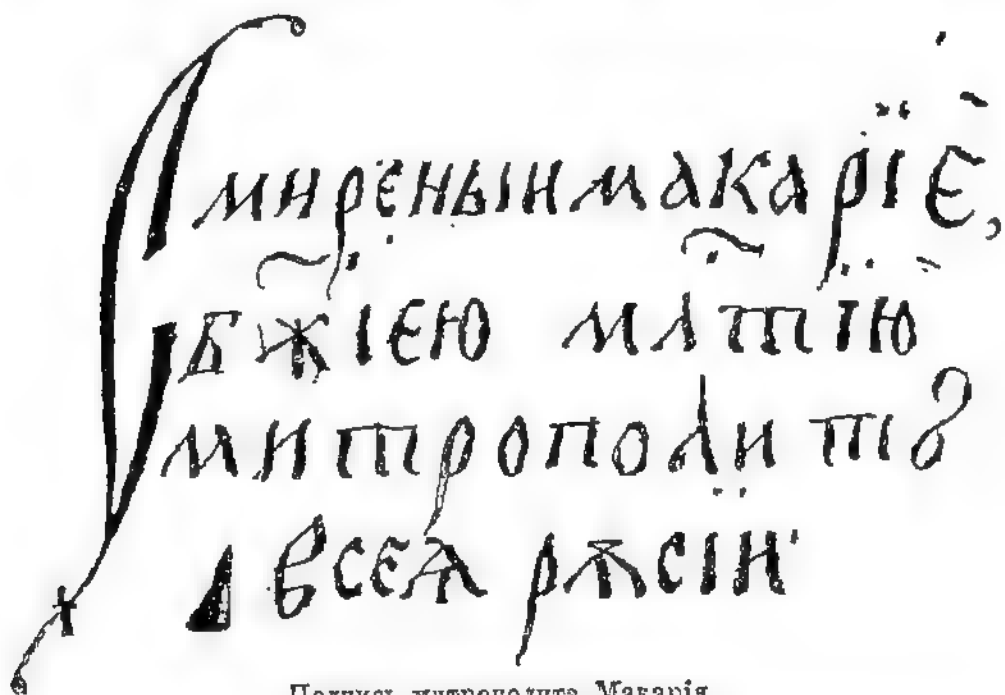 Смиреныи макарїє,
бж҃їєю мл҃тїю
митрополитъ
всєѧ рѫсїи
Подпись митрополита Макарія